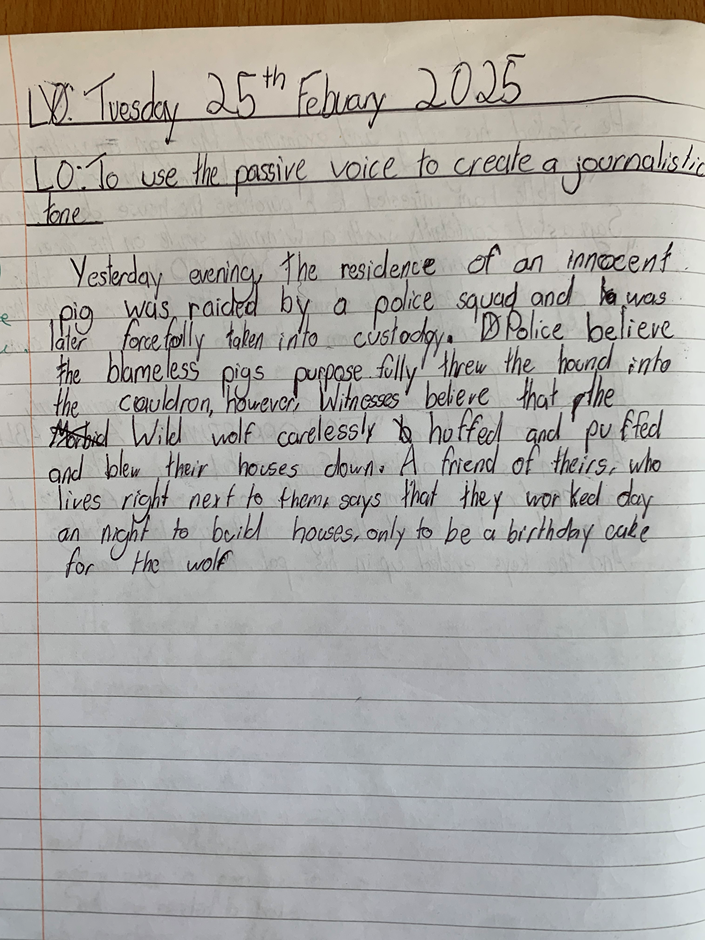 Tuesday 25th Febuary 2025
LO: To use the passive voice to create a journalistic
tone
Yesterday evening, the residence of an innocent
pig was raided by a police squad and was
later forcefully taken into custody. Police believe
the blameless pigs purposefully threw the hound into
the cauldron, however, Witnesses believe that the
Morbid Wild wolf carelessly huffed and puffed
and blew their houses down. A friend of theirs, who
lives right next to them, says that they worked day
an night to build houses, only to be a birthday cake
for the wolf